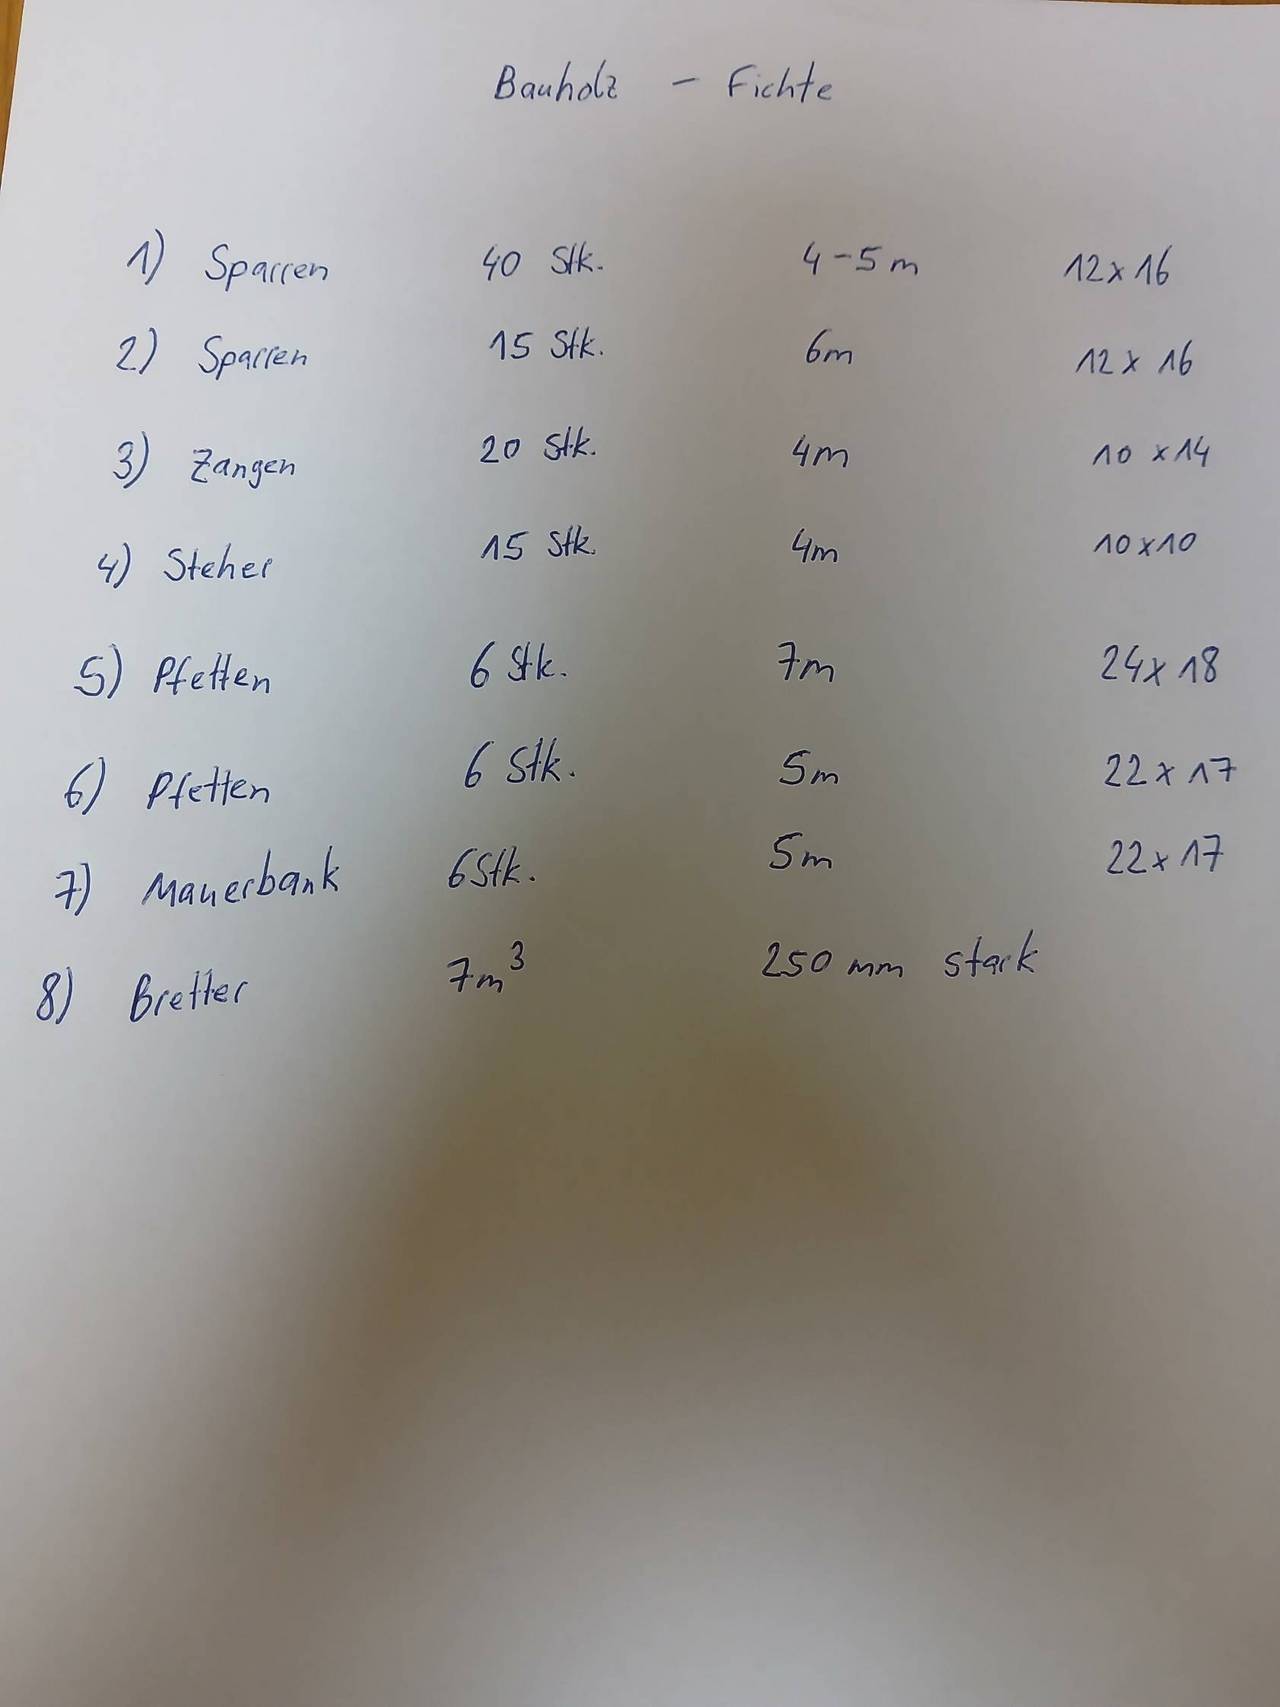 Bauholz - Fichte
1) Sparren 40 Stk. 4-5m 12x16
2) Sparren 15 Stk. 6m 12x16
3) Zangen 20 Stk. 4m 10x14
4) Steher 15 Stk. 4m 10x10
5) Pfetten 6 Stk. 7m 24x18
6) Pfetten 6 Stk. 5m 22x17
7) Mauerbank 6Stk. 5m 22x17
8) Bretter 7m³ 250 mm stark